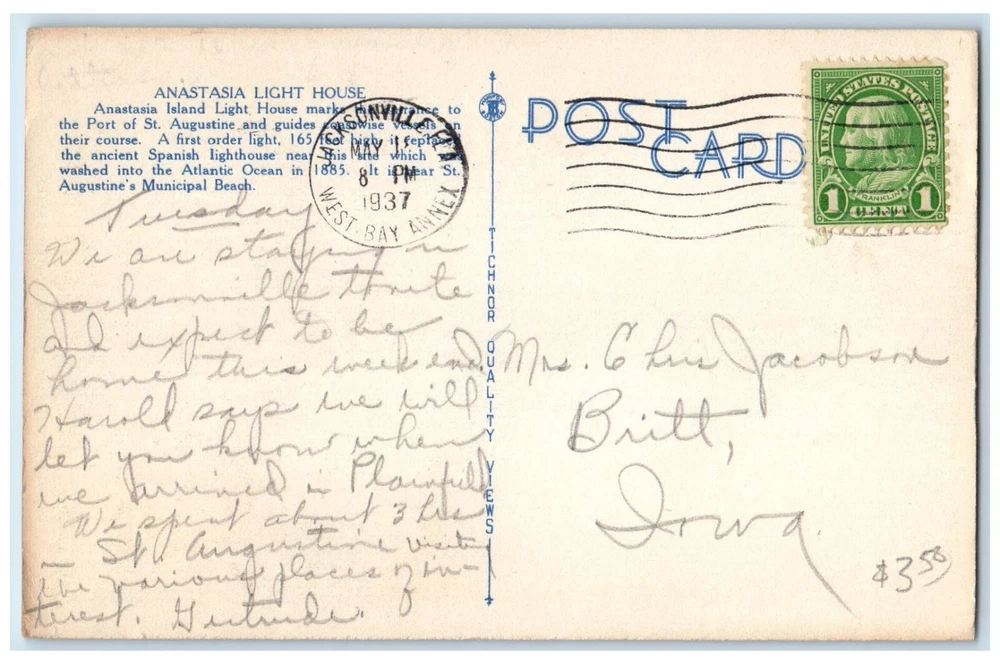 ANASTASIA LIGHT HOUSE
Anastasia Island Light House marks the entrance to
the Port of St. Augustine and guides coastwise vessels on
their course. A first order light, 165 feet high, it replaced
the ancient Spanish lighthouse near this site which
washed into the Atlantic Ocean in 1885. It is near St.
Augustine's Municipal Beach.
JACKSONVILLE, FLA.
MAY 11
8 PM
1937
WEST-BAY ANNEX
POST CARD
UNITED STATES POSTAGE
1 FRANKLIN 1
TICHNOR QUALITY VIEWS
Tuesday
We are staying in
Jacksonville tonite
and expect to be
home this week end.
Harold says we will
let you know when
we arrived in Plainfield
We spent about 3 hrs
in St. Augustine visiting
the various places of in-
terest. Gertrude.
Mrs. Chris Jacobson
Britt,
Iowa.
$3.50